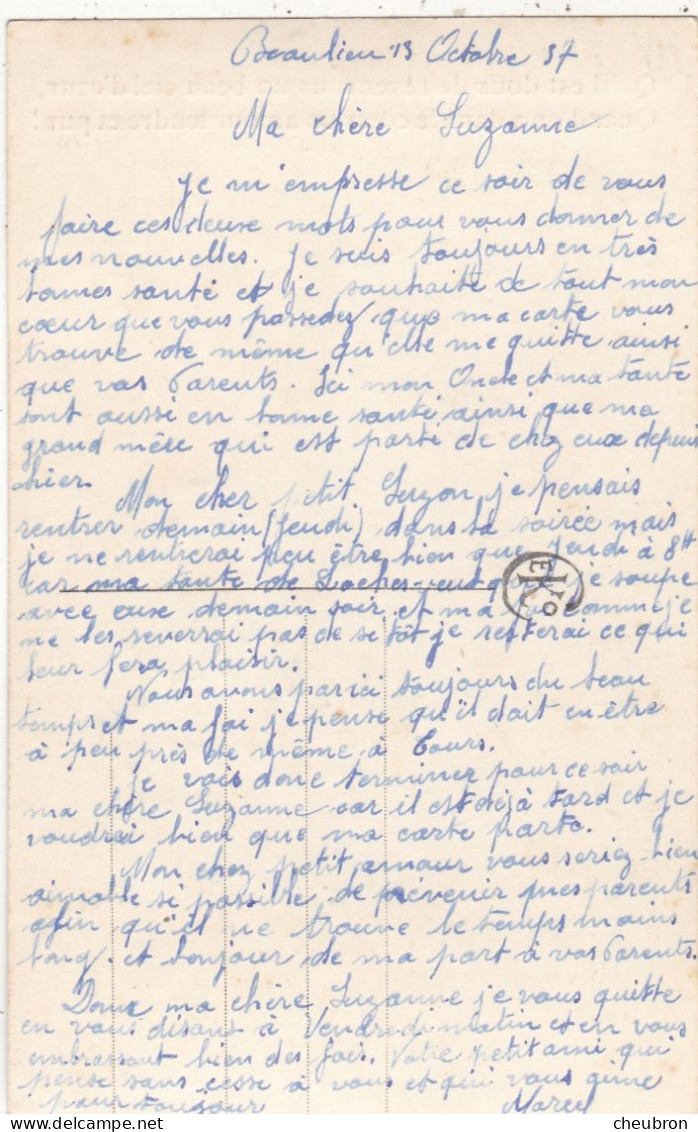 Beaulieu 13 Octobre 37
Ma chère Suzanne
Je m'empresse ce soir de vous
faire ces deuse mots pour vous donner de
mes nouvelles. Je suis toujours en très
bonnes santé et je souhaite de tout mon
coeur que vous passedez que ma carte vous
trouve de même qu'elle me quitte ainsi
que vos Parents. Ici mon Oncle et ma tante
sont aussi en bonne santé ainsi que ma
grand mère qui est parti de chez euse depuis
hier.
Mon cher petit Suzon, je pensais
rentrer demain (Jeudi) dans la soirée mais
je ne rentrerai peu être bien que Jeudi à 8H
car ma tante de Loches veut que je soupe
avec euse demain soir et ma foi comme je
ne les reverrai pas de si tôt je resterai ce qui
leur fera plaisir.
Nous avons par ici toujours du beau
temps et ma foi je pense qu'il doit en être
à peu près de même à Tours.
Je vais donc terminer pour ce soir
ma chère Suzanne car il est déjà tard et je
voudrai bien que ma carte parte.
Mon cher petit amour vous seriez bien
aimable si possible de prévenir mes parents
afin qu'il ne trouve le temps moins
long. et bonjour de ma part à vos Parents.
Donc ma chère Suzanne je vous quitte
en vous disant à Vendredi matin et en vous
embrassant bien des fois. Votre petit ami qui
pense sans cesse à vous et qui vous aime
pour toujour Marcel
cheubron